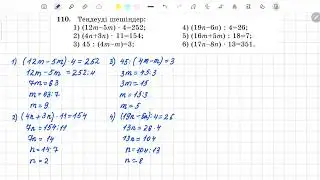 110. Теңдеуді шешіңдер:
1) (12m−5m) · 4=252;
2) (4n+3n) · 11=154;
3) 45 : (4m−m)=3;
4) (19n−6n) : 4=26;
5) (16n+5n) : 18=7;
6) (17n−8n) · 13=351.
1) (12m−5m)·4=252
12m−5m=252:4
7m=63
m=63:7
m=9.
2) (4n+3n)·11=154
7n=154:11
7n=14
n=14:7
n=2
3) 45:(4m−m)=3
3m=45:3
3m=15
m=15:3
m=5
4) (19n−6n):4=26
13n=26·4
13n=104
n=104:13
n=8